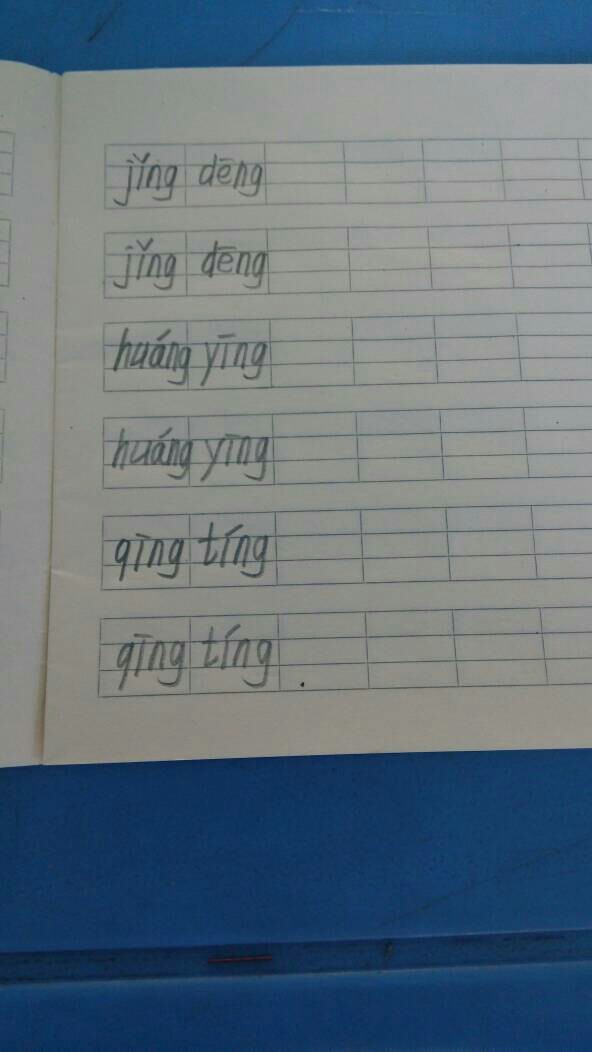 jǐng dēng
jǐng dēng
huáng yīng
huáng yīng
qīng tíng
qīng tíng